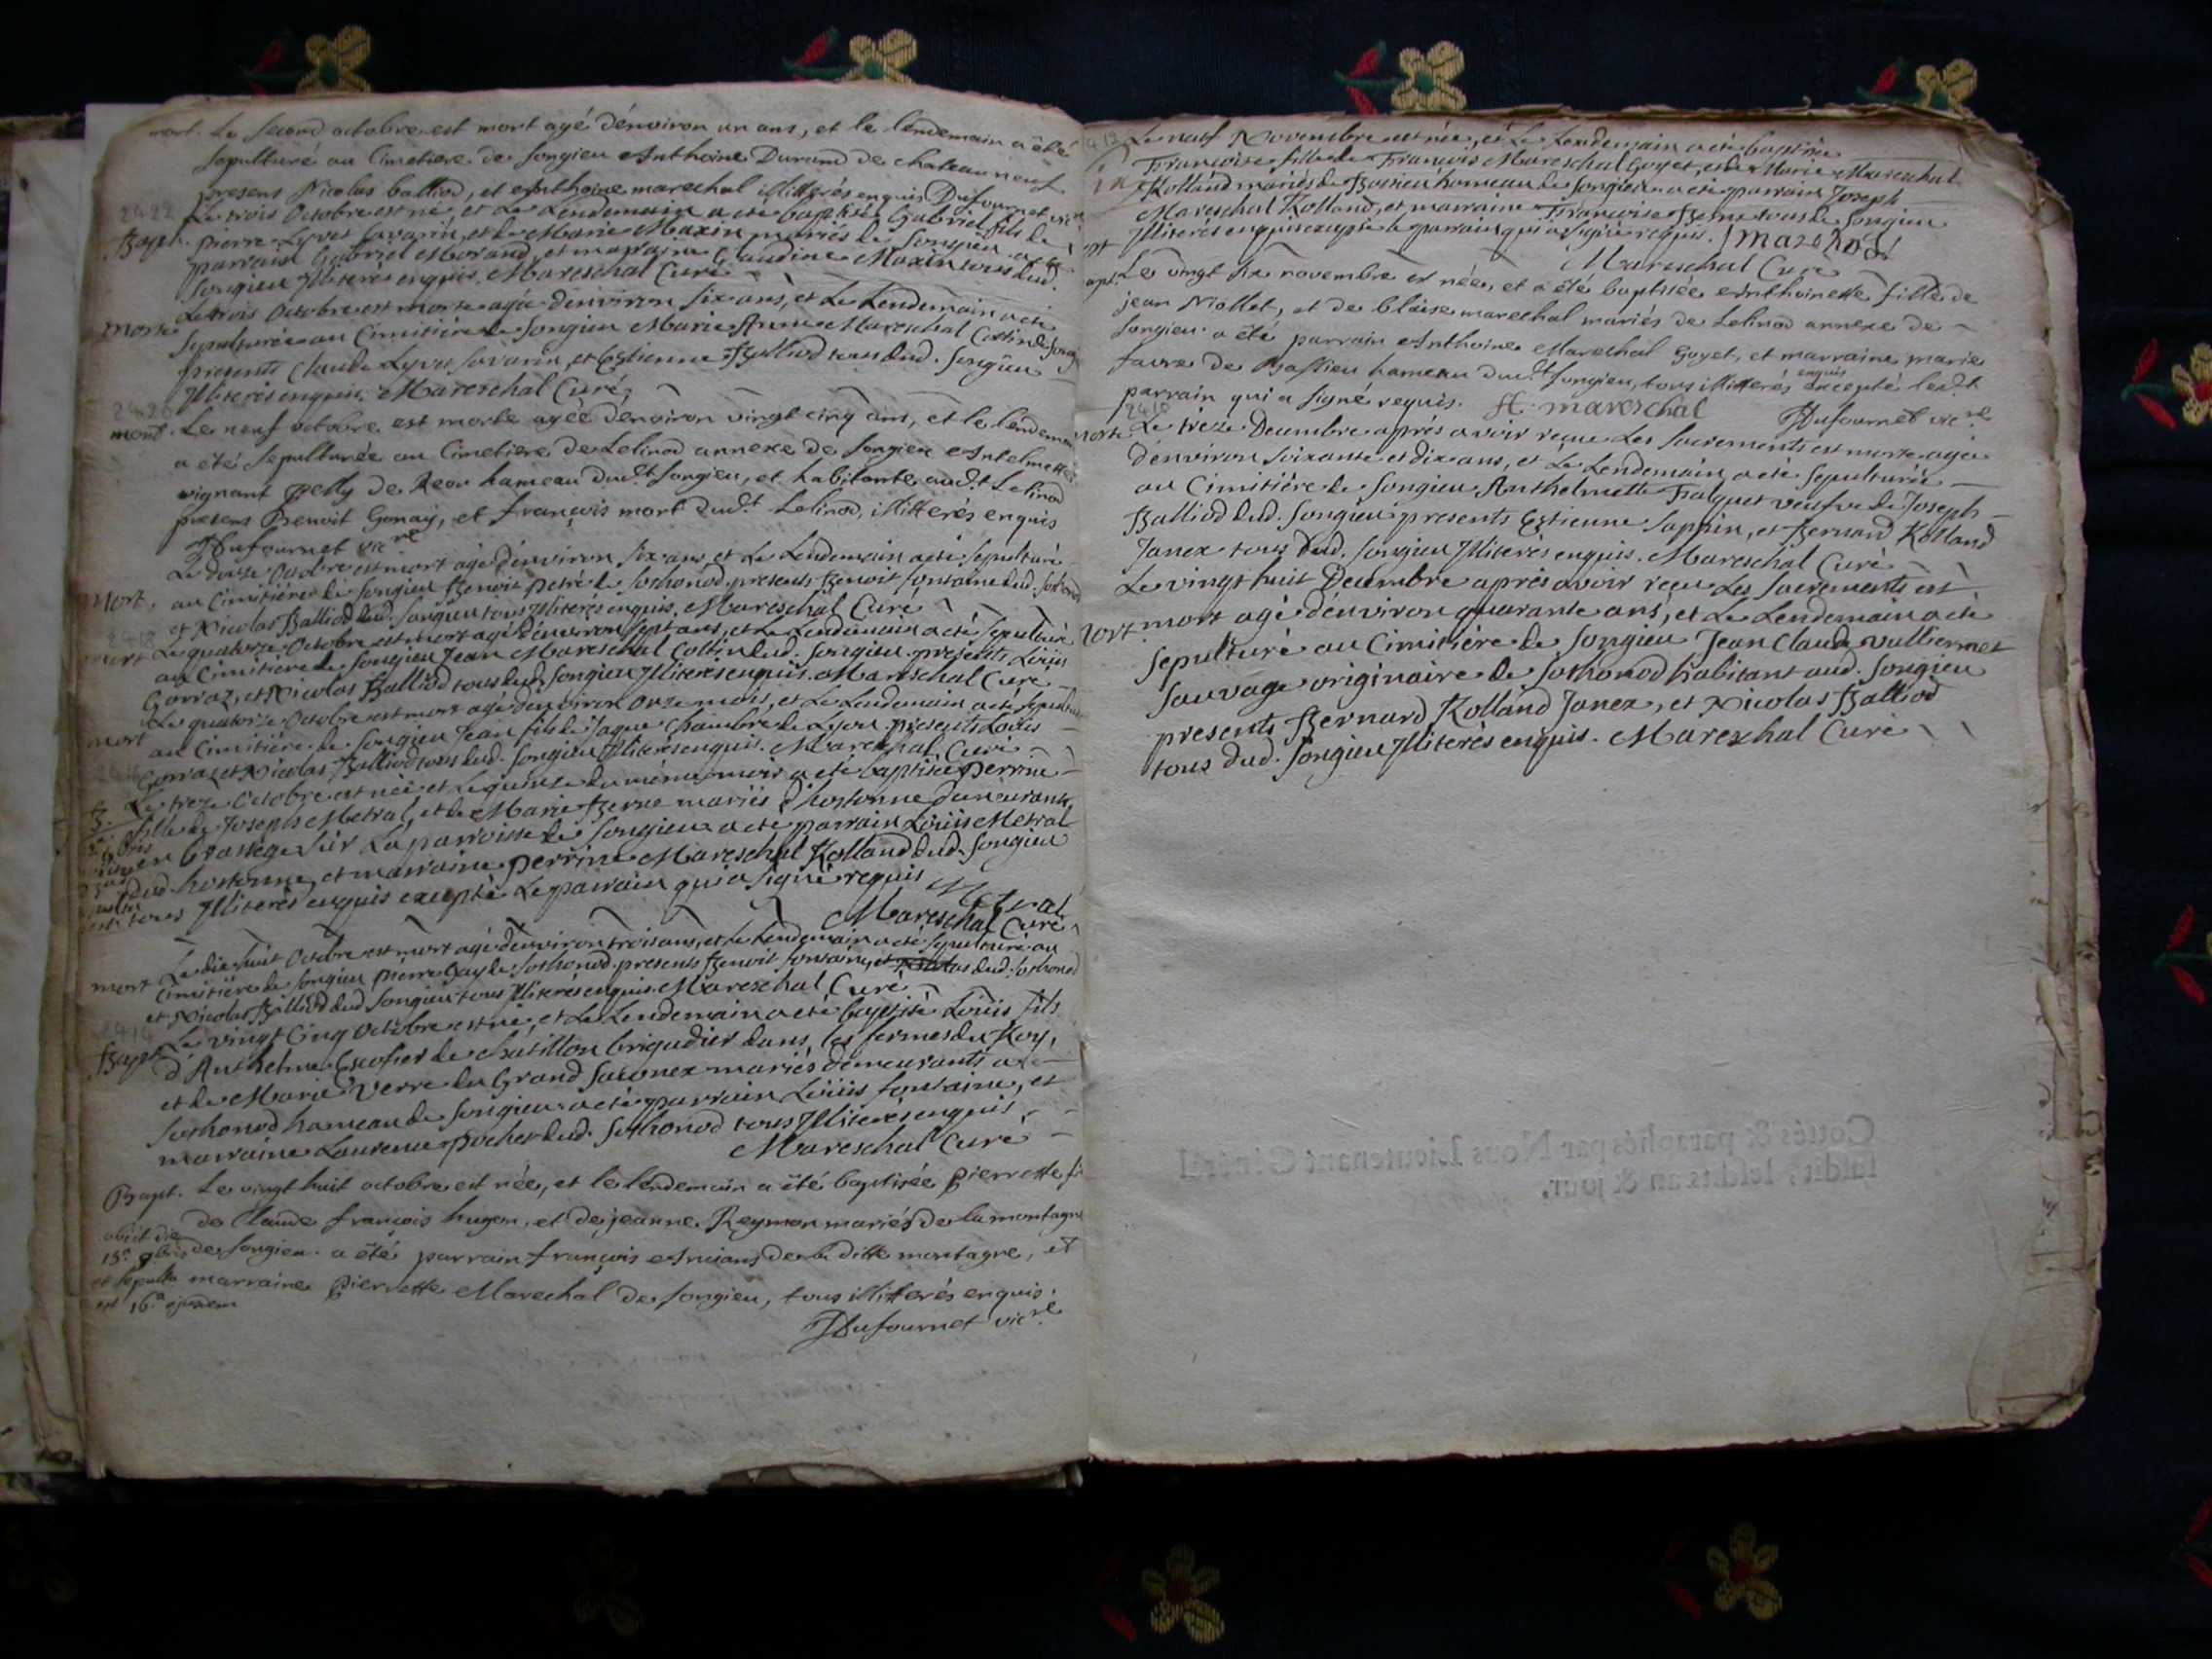 mort. Le second octobre est mort agé d'énviron un ans, et le lendemain a êté
sepulturé au Cimetiere de Songieu Anthoine Durand de chateauneuf
presens Nicolas balliod, et Anthoine marechal illitterés enquis Dufournet vic.re
2422 Le trois Octobre est né, et Le Lendemain a eté baptisé Gabriel fils de
Bapt. pierre Lyvet Savarin, et de Marie Maxin mariés de Songieu a eté
parrain Gabriel Morand, et marraine Claudine Maxin tous dud.
Songieu Illiterés enquis. Mareschal Curé
Le trois Octobre est morte agée d'énviron six ans, et Le Lendemain a eté
morte sepulturée au Cimitière de Songieu Marie Anne Mareschal Cottin de Songieu
presents Claude Lyvet Savarin, et Estienne Balliod tous dud. Songieu
Illiterés enquis. Mareschal Curé
mort. Le neuf octobre est morte agée d'énviron vingt cinq ans, et le lendemain
a êté sepulturée au Cimetiere de Lelinod annexe de Songieu Antelmette
vignant pelly de hameau dud.t Songieu, et habitante aud.t Lelinod
presens Benoit Gonay, et françois mort dud.t Lelinod, illitterés enquis
Dufournet vic.re
Le douze Octobre est mort agé d'énviron six ans, et Le Lendemain a eté sepulturé
Mort. au Cimitière de Songieu Benoit petre de Sothonod. presents Benoit fontaine dud. Sothonod
et Nicolas Balliod dud. Songieu tous Illiterés enquis. Mareschal Curé
mort Le quatorze Octobre est mort agé d'énviron sept ans, et Le Lendemain a eté sepulturé
au Cimitiere de Songieu Jean Mareschal Cottin dud. Songieu. presents Loüis
Gorraz, et Nicolas Balliod tous dud. Songieu Illiterés enquis. Mareschal Curé
Le quatorze Octobre est mort agé d'énviron onze mois, et Le Lendemain a eté sepulturé
mort au Cimitière de Songieu Jean fils de Jaque Chambre de Lyon presents Louis
Gorraz et Nicolas Balliod tous dud. Songieu Illiterés enquis. Mareschal Curé
Le treze Octobre est née et Le quinze du même mois a eté baptisée perrine
fille de Joseph Metral, et de Marie Berne mariés d'hostonne demeurants
en Grassege sur La parroisse de Songieu a eté parrain Loüis Metral
dud. hostonne, et marraine perrine Mareschal Rolland dud. Songieu
tous Illiterés enquis excepté Le parrain qui a signé requis Metral
Mareschal Curé
Le dix huit Octobre est mort agé d'énviron trois ans, et Le Lendemain a eté sepulturé au
mort Cimitière de Songieu pierre Gay de Sothonod. presents Benoit fontaine, et dud. Sothonod
et Nicolas Balliod dud Songieu tous Illiterés enquis. Mareschal Curé
Bapt. Le vingt Cinq Octobre est né, et Le Lendemain a eté baptisé Loüis fils
d'Anthelme Escofier de Chatillon brigadier dans les fermes du Roy,
et de Marie Verre du Grand Saconex mariés demeurants a
Sothonod hameau de Songieu. a eté parrain Loüis fontaine, et
marraine Laurence pochet dud. Sothonod tous Illiterés enquis
Mareschal Curé
Bapt. Le vingt huit octobre est née, et le lendemain a êté baptisée Pierrette fi
de Claude françois hugon, et de jeanne Reymon mariés de la montagne
obiit die
15.a 9bris de Songieu. a êté parrain françois Ancians de la ditte montagne, et
et sepulta marraine Pierrette Marechal de Songieu, tous illitterés enquis.
est 16.a ejusdem
Dufournet vic.re
Le neuf Novembre est née, et Le Lendemain a eté baptisée
Françoise fille de François Mareschal Goyet, et de Marie Mareschal
Rolland mariés de Bassieu hameau de Songieu a eté parrain Joseph
Mareschal Rolland, et marraine Françoise Berne tous de Songieu
Illiterés enquis excepté le parrain qui a signé requis. J marechal
Mareschal Curé
apt. Le vingt six novembre est née, et a êté baptisée Anthoinette fille de
jean Niollet, et de blaise marechal mariés de Lelinod annexe de
Songieu. a êté parrain Anthoine Marechal Goyet, et marraine marie
favre de Bassieu hameau dud.t Songieu, tous illitterés enquis excepté led.t
parrain qui a signé requis. A. mareschal Dufournet vic.re
Morte Le tréze Decembre aprés avoir reçue Les Sacrements est morte agée
d'énviron soixante et dix ans, et Le Lendemain a eté sepulturée
au Cimitière de Songieu Anthelmette Falquet veufve de Joseph
Balliod dud. Songieu presents Estienne Sappin, et Bernard Rolland
Janex tous dud. Songieu Illiterés enquis. Mareschal Curé
Le vingt huit Decembre aprés avoir reçu Les Sacrements est
Mort mort agé d'énviron quarante ans, et Le Lendemain a eté
sepulturé au Cimitière de Songieu Jean Claude Vulliermet
Sauvage originaire de Sothonod habitant aud. Songieu
presents Bernard Rolland Janex, et Nicolas Balliod
tous dud. Songieu Illiterés enquis. Mareschal Curé
Cottés & paraphés par Nous Lieutenant Général
susdit, lesdits an & jour.